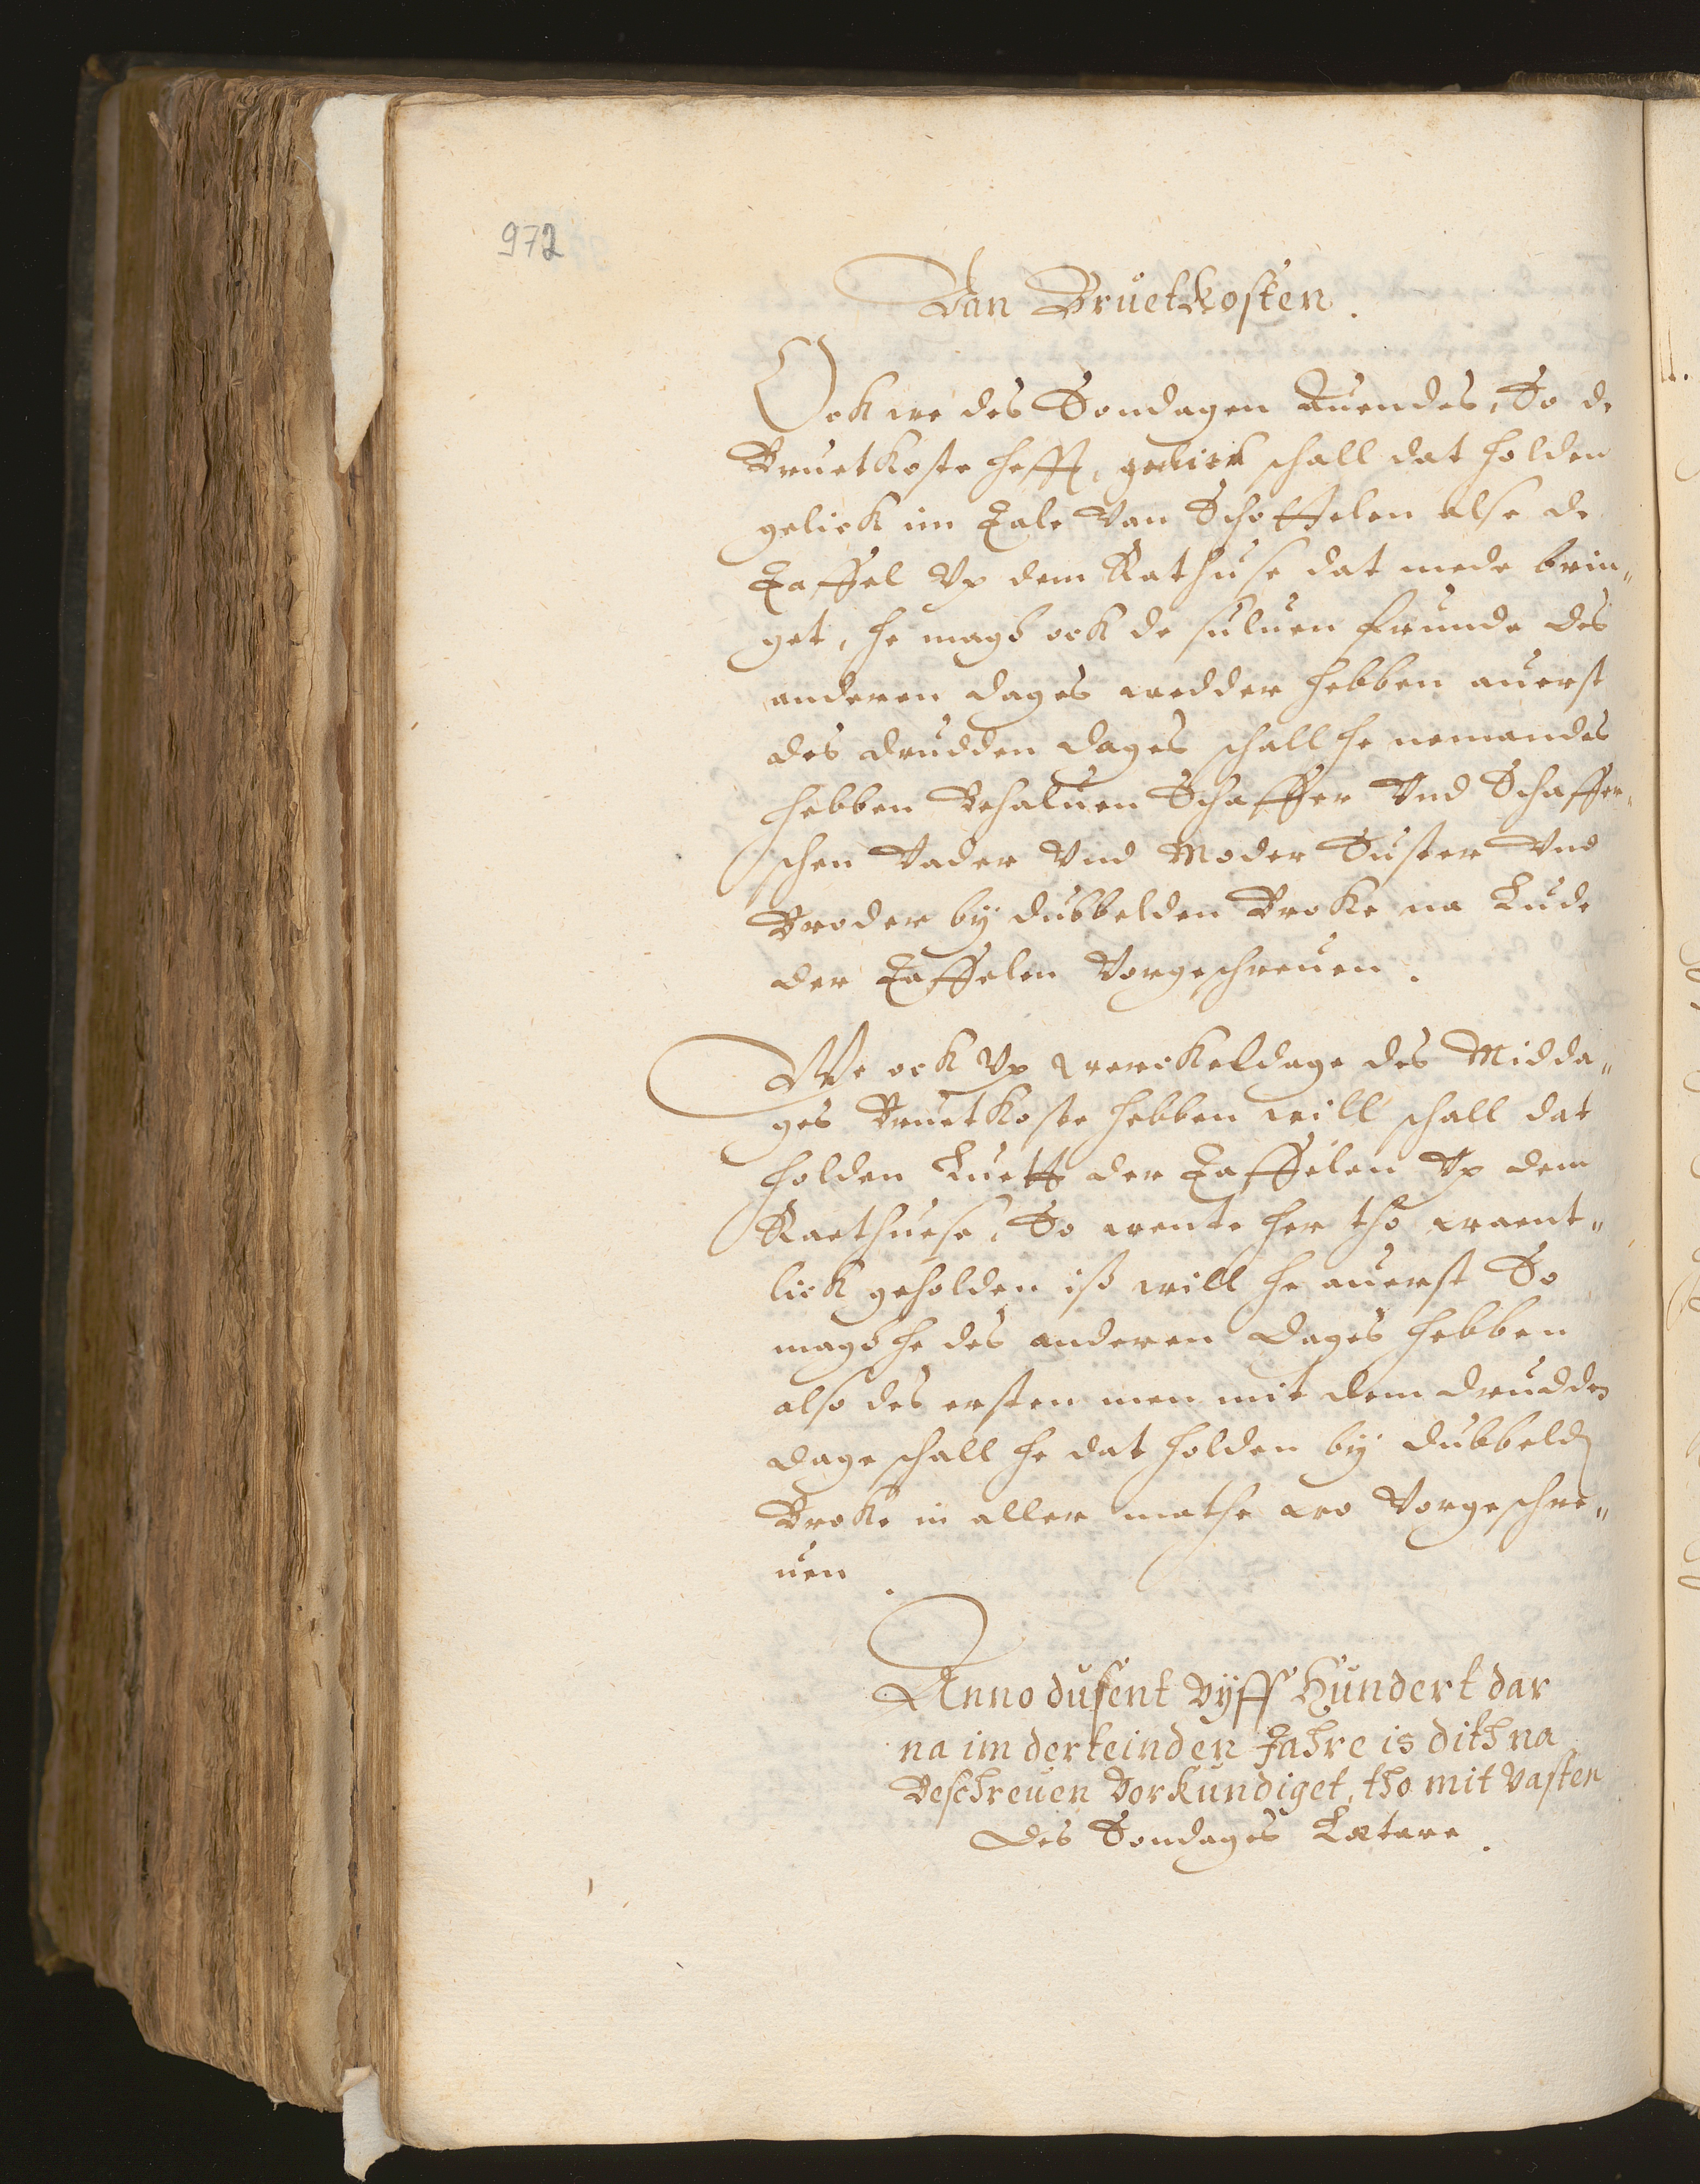 972
Van Bruetkosten.
Ook we des Sondagen Auendes, So de
Bruetkoste hefft, gelick schall dat holden
gelick im Tale Van Schottelen alse de
Taffel Vp dem Rathuse dat mede brin„
get, he magh ook de suluen frunde des
anderen dages wedder hebben auerst
des drudden dages schall he nemandes
hebben Behaluen Schaffer Vnd Schaffer„
schen Vader Vnd Moder Suster Vnd
Broder by dubbelden Broke na Lude
der Taffelen Vorgeschreuen.
We ook Vp werckeldage des Midda„
ges Bruetkoste hebben will schall dat
holden Luett der Taffelen Vp dem
Raethuese, So wente her tho waent„
lick geholden iß will he auerst So
magh he des anderen dages hebben
also des ersten men mit dem drudden
dage schall he dat holden by dubbelden
Broke in aller mathe wo Vorgeschre„
uen.
Anno dusent vyff Hundert dar
na im derteinden Jahre is dith na
Beschreuen Vorkundiget, tho mit vasten
des Sondages Lætare.